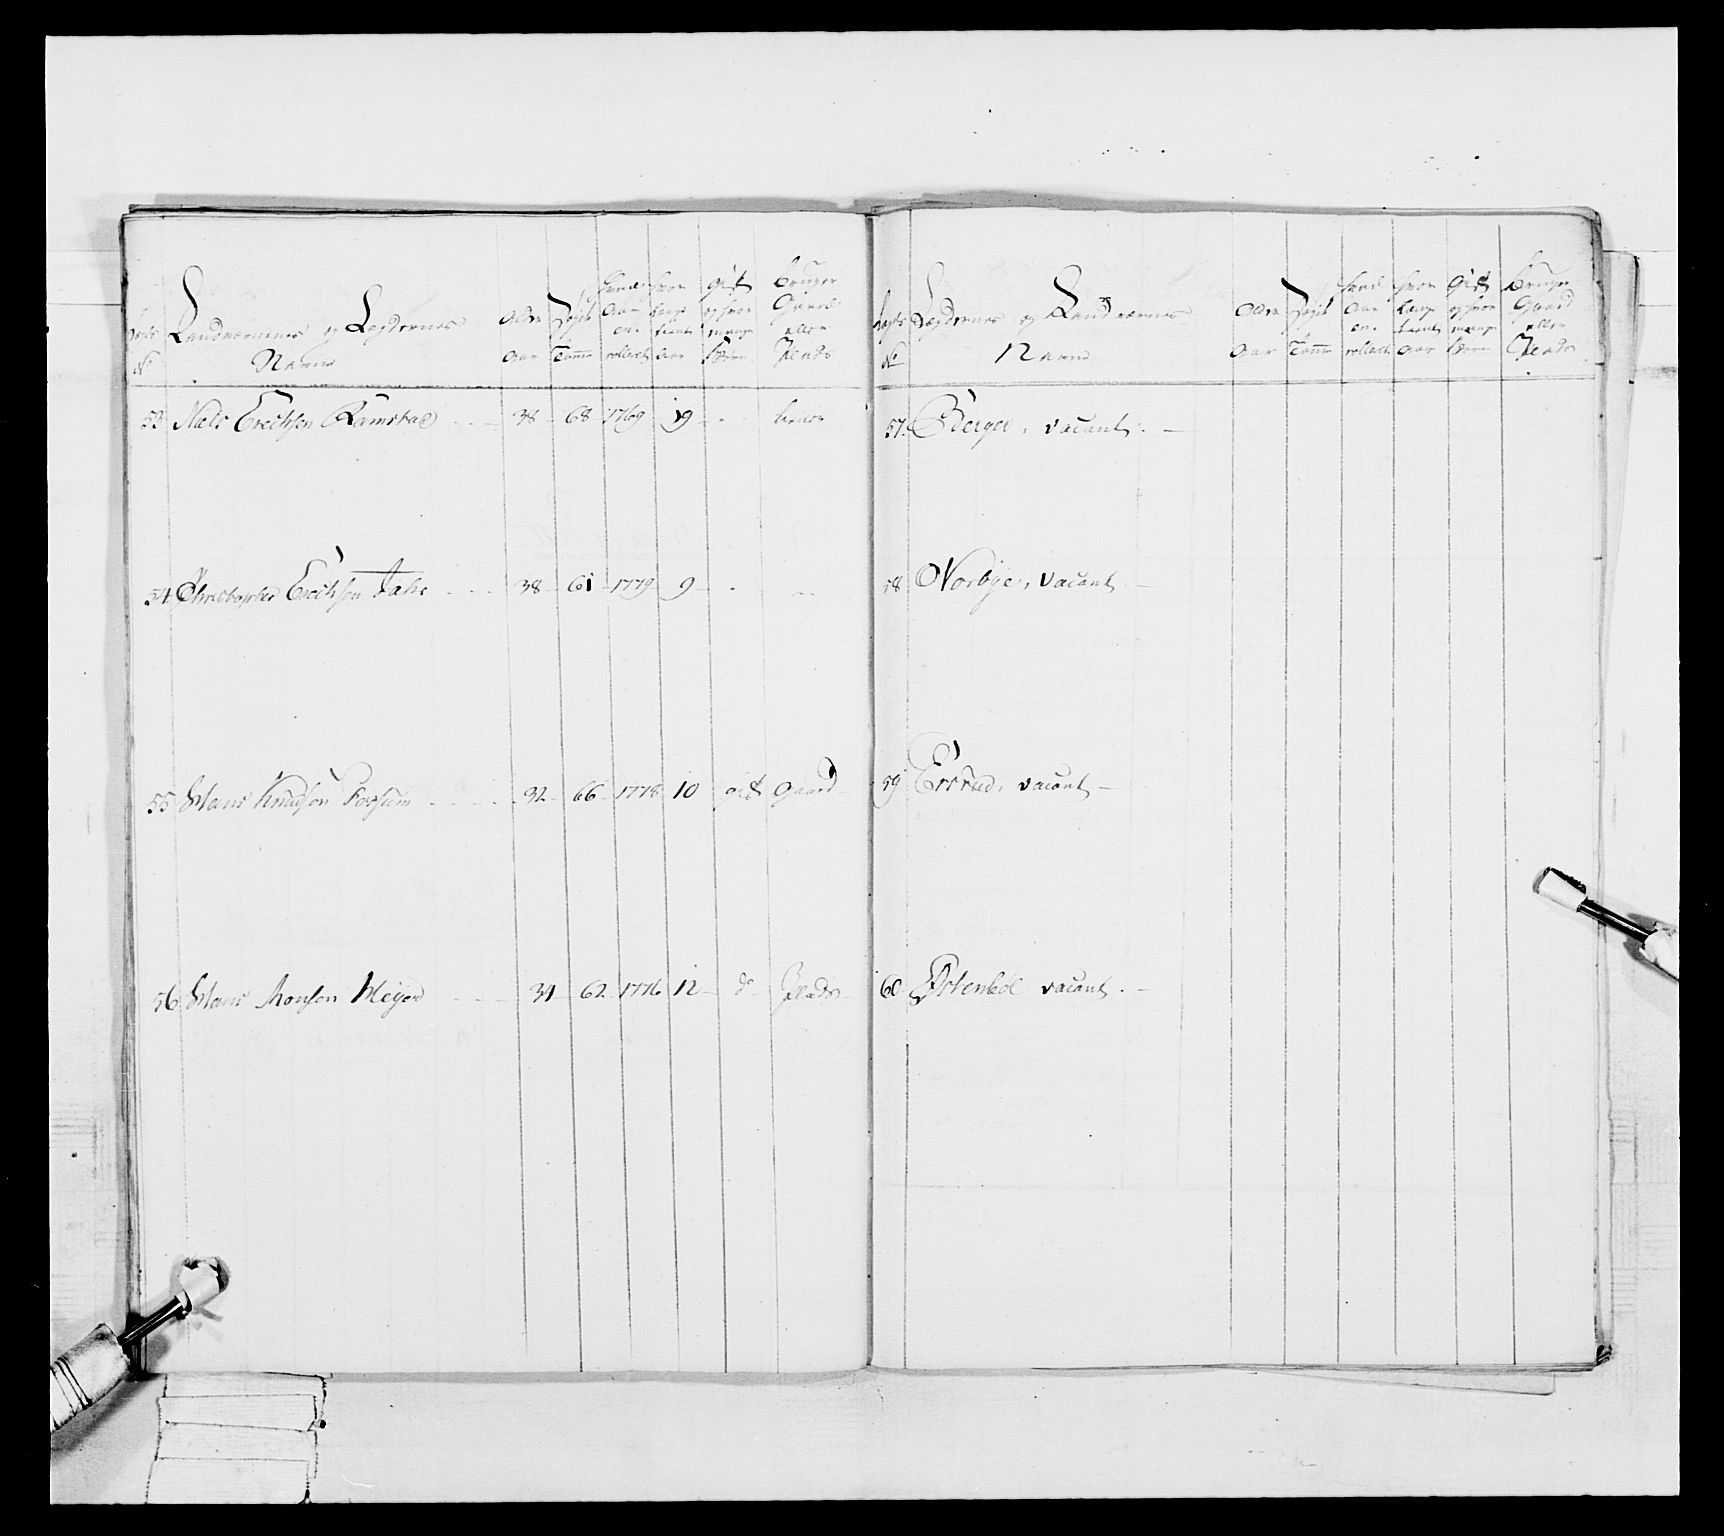 Landværnnes og Lægdernes
Navne
Alder
Aar
Høyde
Tomme
Hvad
Aar
en-
rolleret
hvor
længe
tient
Aar
Gift
og hvor
mange
Børn
Bruger
Gaard
eller
Plads
53 Niels Erechsen Ramstad - 38 - 68 - 1769 - 19 - -
54 Christopher Erechsen Jahr - - - 38 - 61 - 1779 - 9 - -
55 Hans Knudsen Fossum - - - 32 - 66 - 1778 - 10 gift Gaard -
56 Hans Monsen Meyer - - - 34 - 62 - 1776 - 12 - do - Plads -
Lægdernes og Landværnes
Navne
Alder
Aar
Høyde
Tomme
Hvad
Aar
en-
rolleret
hvor
længe
tient
Aar
Gift
og hvor
mange
Børn
Bruger
Gaard
eller
Plads
57. Berger, vacant. -
58 Norbye, vacant. -
59 vacant -
60 vacant. -